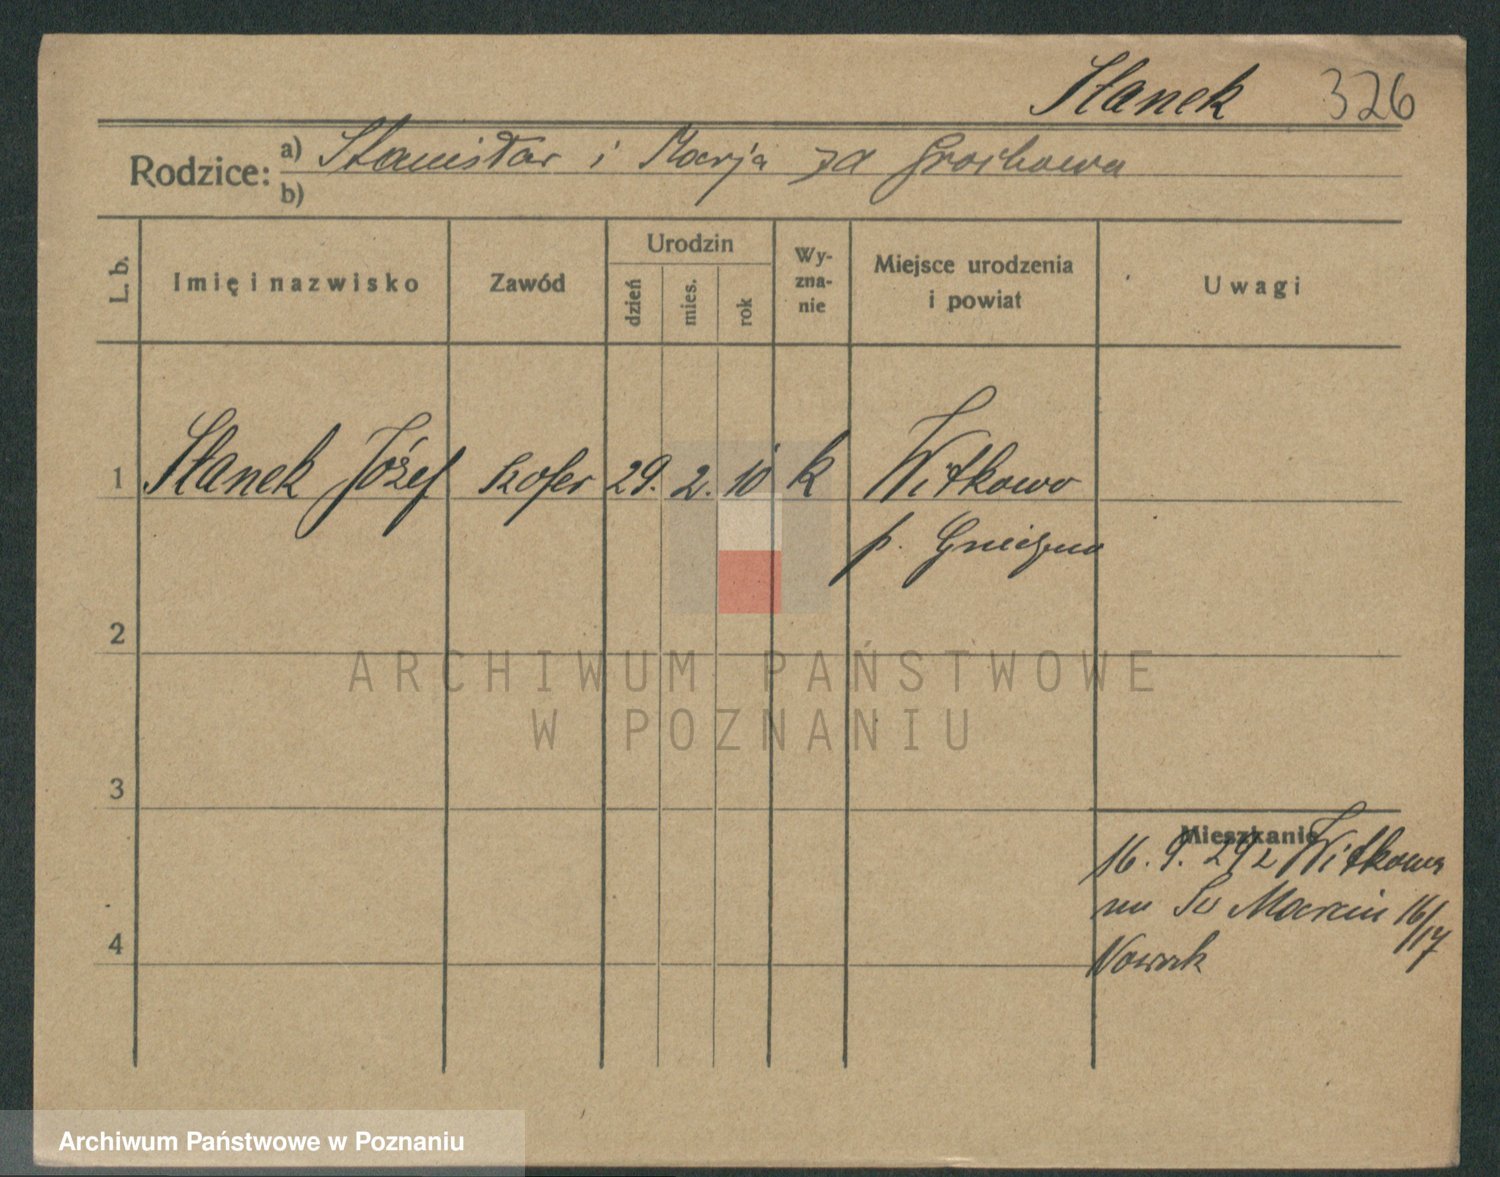 Stanek 326
Rodzice: a) Stanisław i Marja zd Grochowa
b)
L. b. Imię i nazwisko Zawód Urodzin dzień mies. rok Wyznanie Miejsce urodzenia i powiat Uwagi
1 Stanek Józef szofer 29. 2. 10 k Witkowo
p. Gniezno
2
ARCHIWUM PAŃSTWOWE
W POZNANIU
3
Mieszkanie
16. 9. 29 z Witkowa
na Św Marcin 16/17
4
Nowak
Archiwum Państwowe w Poznaniu